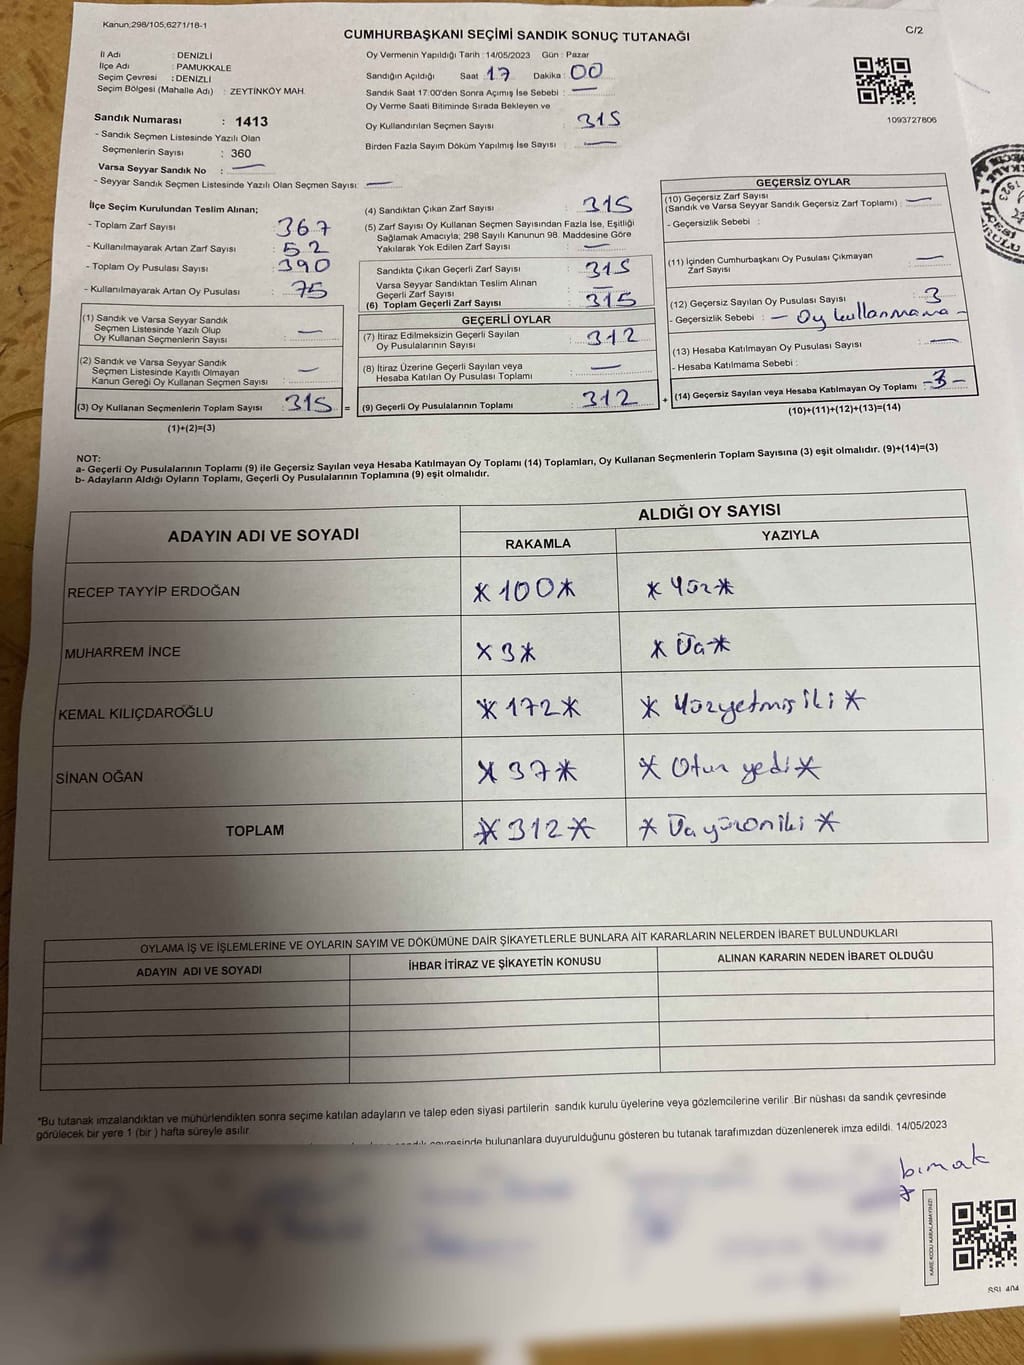 Kanun;298/105;6271/18-1
CUMHURBAŞKANI SEÇİMİ SANDIK SONUÇ TUTANAĞI
C/2
İl Adı : DENİZLİ
İlçe Adı : PAMUKKALE
Seçim Çevresi : DENİZLİ
Seçim Bölgesi (Mahalle Adı) : ZEYTİNKÖY MAH.
Sandık Numarası : 1413
- Sandık Seçmen Listesinde Yazılı Olan
Seçmenlerin Sayısı : 360
Varsa Seyyar Sandık No : —
- Seyyar Sandık Seçmen Listesinde Yazılı Olan Seçmen Sayısı: —
Oy Vermenin Yapıldığı Tarih : 14/05/2023 Gün : Pazar
Sandığın Açıldığı Saat 17 Dakika : 00
Sandık Saat 17:00'den Sonra Açımış İse Sebebi : —
Oy Verme Saati Bitiminde Sırada Bekleyen ve
Oy Kullandırılan Seçmen Sayısı : 315
Birden Fazla Sayım Döküm Yapılmış İse Sayısı : —
1093727806
İlçe Seçim Kurulundan Teslim Alınan;
- Toplam Zarf Sayısı : 367
- Kullanılmayarak Artan Zarf Sayısı : 52
- Toplam Oy Pusulası Sayısı : 390
- Kullanılmayarak Artan Oy Pusulası : 75
(1) Sandık ve Varsa Seyyar Sandık
Seçmen Listesinde Yazılı Olup
Oy Kullanan Seçmenlerin Sayısı : —
(2) Sandık ve Varsa Seyyar Sandık
Seçmen Listesinde Kayıtlı Olmayan
Kanun Gereği Oy Kullanan Seçmen Sayısı : —
(3) Oy Kullanan Seçmenlerin Toplam Sayısı : 315 =
(1)+(2)=(3)
(4) Sandıktan Çıkan Zarf Sayısı : 315
(5) Zarf Sayısı Oy Kullanan Seçmen Sayısından Fazla İse, Eşitliği
Sağlamak Amacıyla; 298 Sayılı Kanunun 98. Maddesine Göre
Yakılarak Yok Edilen Zarf Sayısı : —
Sandıkta Çıkan Geçerli Zarf Sayısı : 315
Varsa Seyyar Sandıktan Teslim Alınan
Geçerli Zarf Sayısı : —
(6) Toplam Geçerli Zarf Sayısı : 315
GEÇERLİ OYLAR
(7) İtiraz Edilmeksizin Geçerli Sayılan
Oy Pusulalarının Sayısı : 312
(8) İtiraz Üzerine Geçerli Sayılan veya
Hesaba Katılan Oy Pusulası Toplamı : —
(9) Geçerli Oy Pusulalarının Toplamı : 312 +
GEÇERSİZ OYLAR
(10) Geçersiz Zarf Sayısı
(Sandık ve Varsa Seyyar Sandık Geçersiz Zarf Toplamı) : —
- Geçersizlik Sebebi :
(11) İçinden Cumhurbaşkanı Oy Pusulası Çıkmayan
Zarf Sayısı : —
(12) Geçersiz Sayılan Oy Pusulası Sayısı : 3
- Geçersizlik Sebebi : — Oy kullanmama -
(13) Hesaba Katılmayan Oy Pusulası Sayısı : —
- Hesaba Katılmama Sebebi :
(14) Geçersiz Sayılan veya Hesaba Katılmayan Oy Toplamı : -3-
(10)+(11)+(12)+(13)=(14)
NOT:
a- Geçerli Oy Pusulalarının Toplamı (9) ile Geçersiz Sayılan veya Hesaba Katılmayan Oy Toplamı (14) Toplamları, Oy Kullanan Seçmenlerin Toplam Sayısına (3) eşit olmalıdır. (9)+(14)=(3)
b- Adayların Aldığı Oyların Toplamı, Geçerli Oy Pusulalarının Toplamına (9) eşit olmalıdır.
ADAYIN ADI VE SOYADI
ALDIĞI OY SAYISI
RAKAMLA YAZIYLA
RECEP TAYYİP ERDOĞAN *100* *Yüz*
MUHARREM İNCE *3* *Üç*
KEMAL KILIÇDAROĞLU *172* *Yüzyetmiş iki*
SİNAN OĞAN *37* *Otuz yedi*
TOPLAM *312* *Üçyüzoniki*
OYLAMA İŞ VE İŞLEMLERİNE VE OYLARIN SAYIM VE DÖKÜMÜNE DAİR ŞİKAYETLERLE BUNLARA AİT KARARLARIN NELERDEN İBARET BULUNDUKLARI
ADAYIN ADI VE SOYADI İHBAR İTİRAZ VE ŞİKAYETİN KONUSU ALINAN KARARIN NEDEN İBARET OLDUĞU
*Bu tutanak imzalandıktan ve mühürlendikten sonra seçime katılan adayların ve talep eden siyasi partilerin sandık kurulu üyelerine veya gözlemcilerine verilir .Bir nüshası da sandık çevresinde
görülecek bir yere 1 (bir ) hafta süreyle asılır.
bulunanlara duyurulduğunu gösteren bu tutanak tarafımızdan düzenlenerek imza edildi. 14/05/2023
KARE KODU KARALAMAYINIZ!